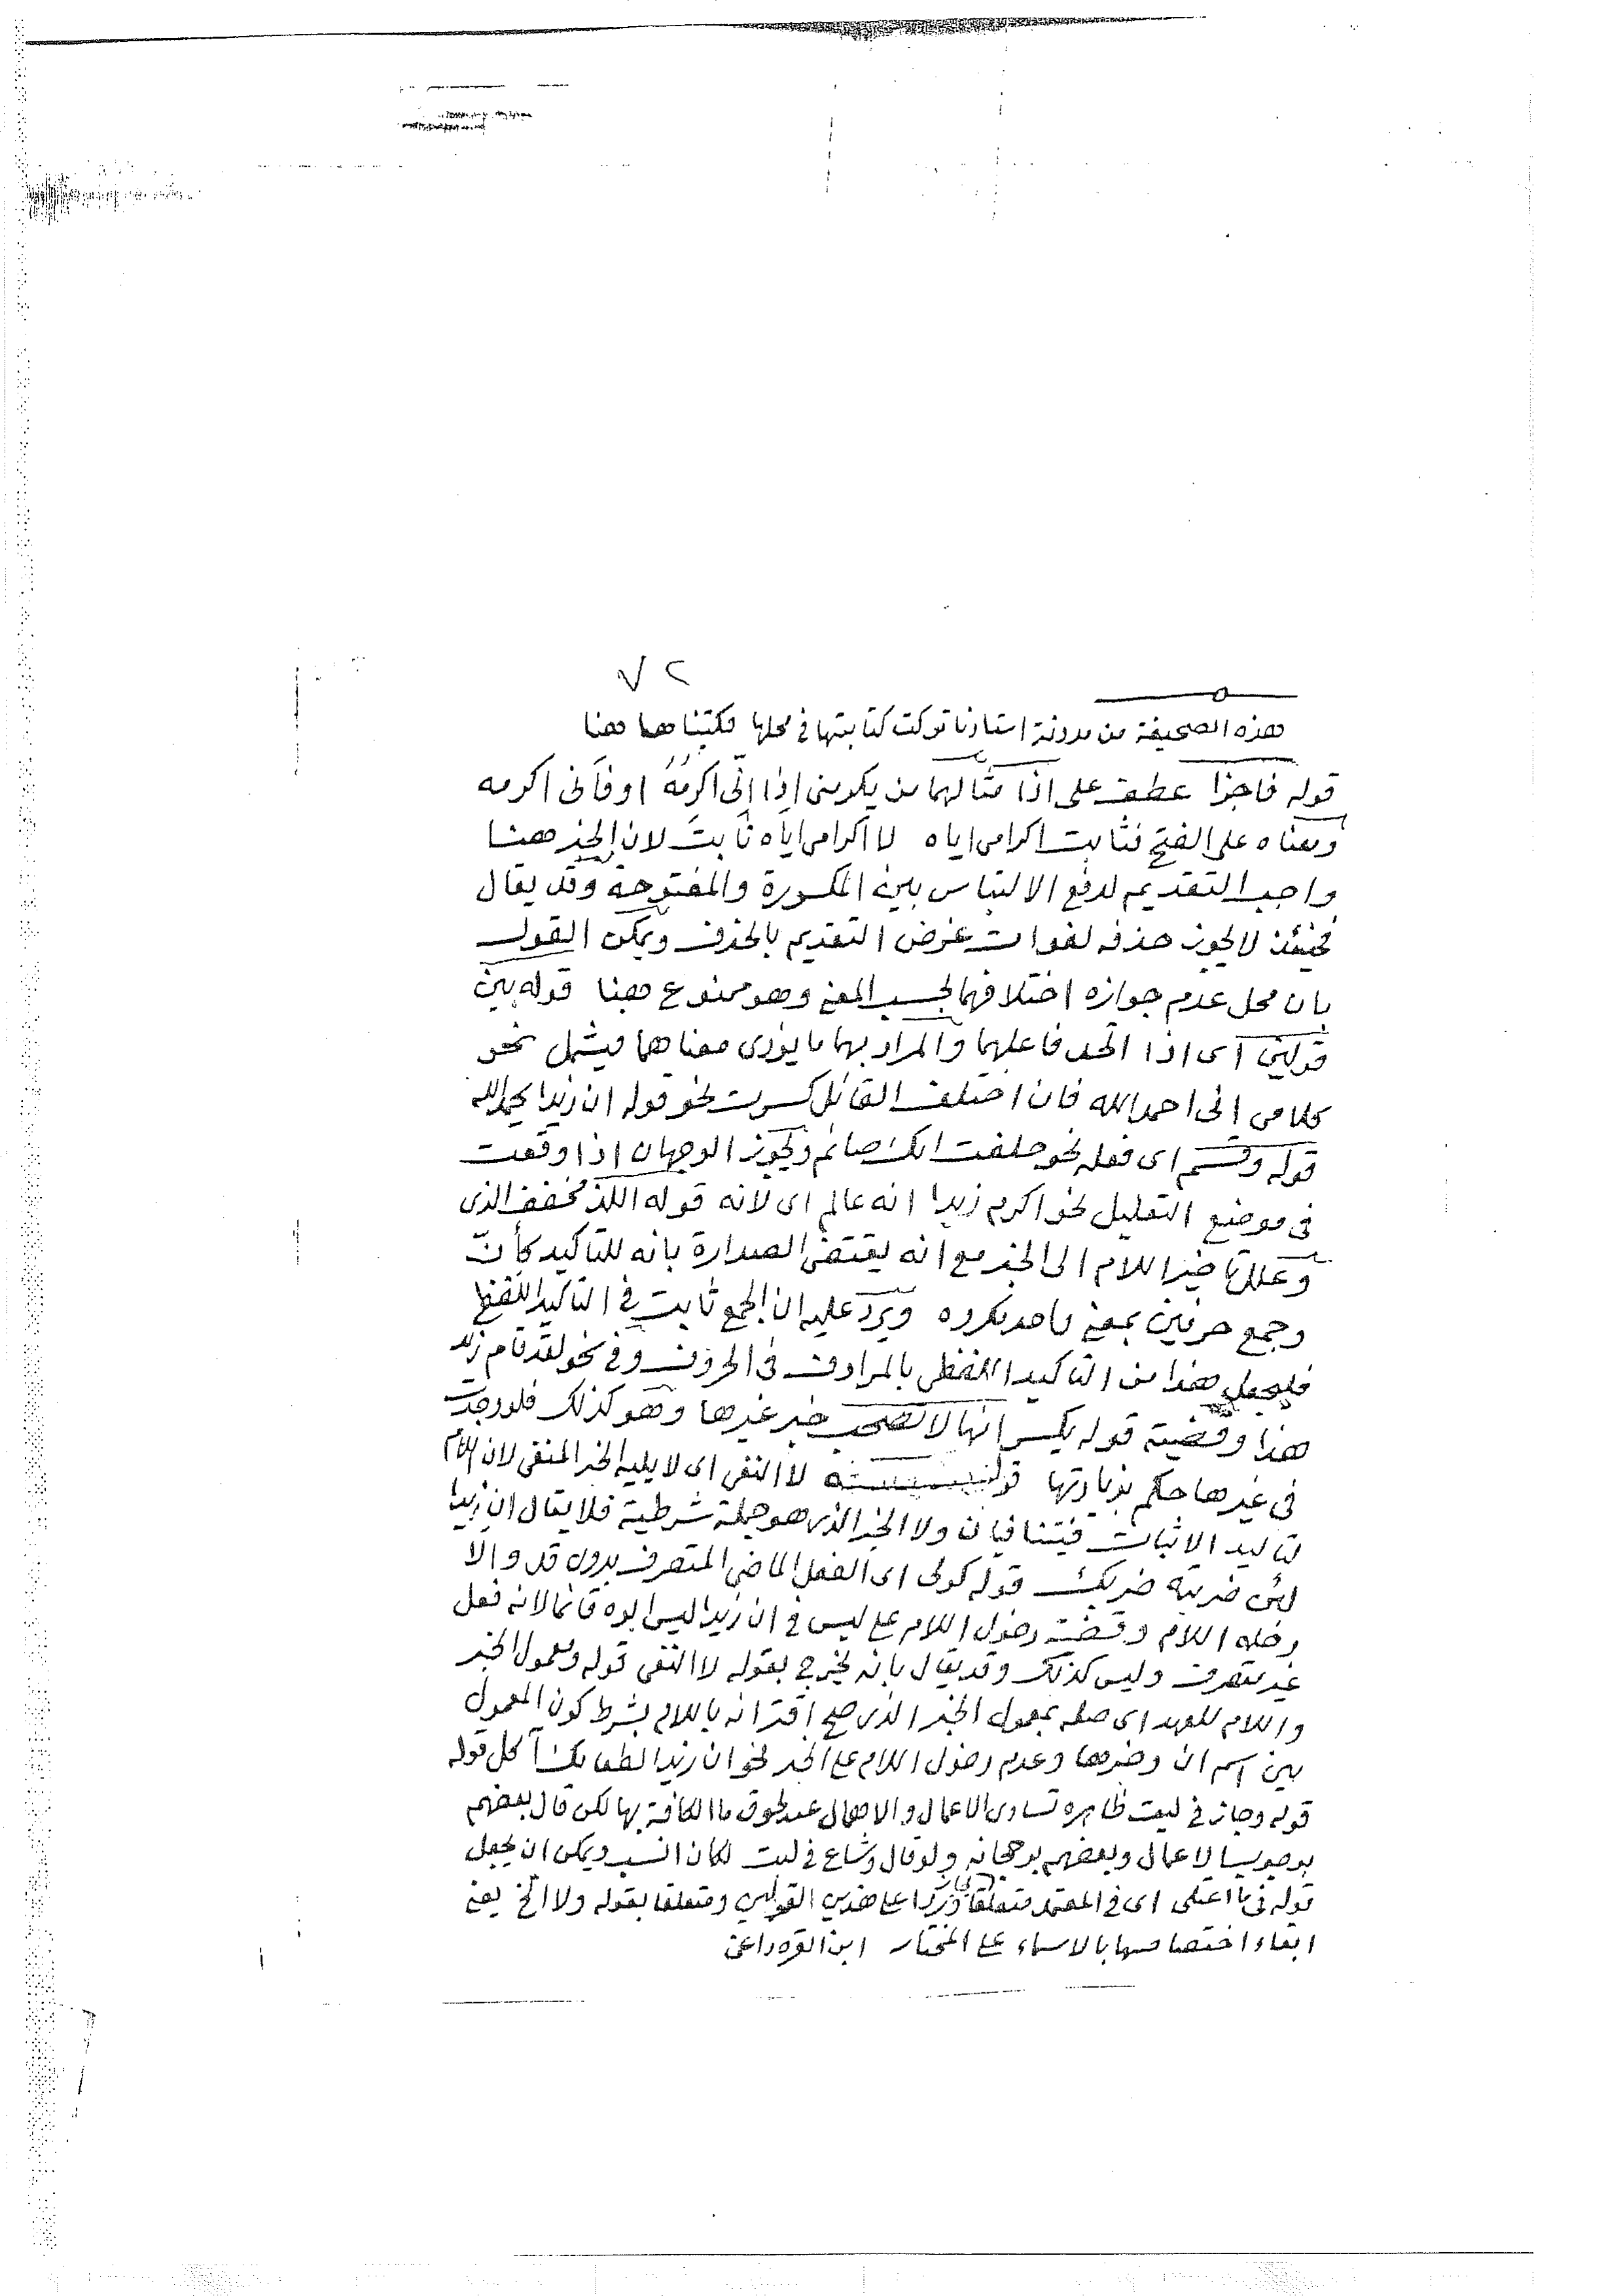 ٧٢
هذه الصحيفة من مدونة استاذنا تركت كتابتها في محلها فكتبناها هنا
قوله فاجزا عطف على اذا مثالهما من يكرمنى اذا انى اكرمه او فانى اكرمه
ومعناه على الفتح فثابت اكرامى اياه لا اكرامى اياه ثابت لان الخبر ههنا
واجب التقديم لدفع الالتباس بين المكسورة والمفتوحة وقد يقال
فحينئذ لا يجوز حذفه لفوات غرض التقديم بالحذف ويمكن القول
بان محل عدم جوازه اختلافهما بحسب المعنى وهو ممنوع ههنا قوله بين
قولين اى اذا اتحد فاعلهما والمراد بهما ما يؤدى معناهما فيشمل نحو
كلامى انى احمد الله فان اختلف القائل كسرت نحو قوله ان زيدا يحمد الله
قوله وقسم اى فعله نحو حلفت انك صائم ويجوز الوجهان اذا وقعت
فى موضع التعليل نحو اكرم زيدا انه عالم اى لانه قوله اللذ مخفف الذى
وعلل تاخير اللام الى الخبر مع انه يقتضى الصدارة بانه للتاكيد كأنّ
وجمع حرفين بمعنى واحد مكروه ويرد عليه ان الجمع ثابت فى التاكيد اللفظى
فليجعل هذا من التاكيد اللفظى بالمرادف فى الحرف وفى نحو لقد قام زيد
هذا وقضية قوله بكسر انها لا تصحب خبر غيرها وهو كذلك فلو وجدت
فى غيرها حكم بزيادتها قوله لا النفى اى لا يليه الخبر المنفى لان اللام
لتاكيد الاثبات فيتنافيان ولا الخبر الذى هو جملة شرطية فلا يقال ان زيدا
لئن ضربته ضربك قوله كولى اى الفعل الماضى المتصرف بدون قد والا
دخله اللام وقضيته دخول اللام على ليس فى ان زيدا ليس ابوه قائما لانه فعل
غير متصرف وليس كذلك وقد يقال بانه يخرج بقوله لا النفى قوله ومعمول الخبر
واللام للعهد اى صلة بمعمول الخبر الذى صح اقترانه باللام بشرط كون المعمول
بين اسم ان وخبرها وعدم دخول اللام على الخبر نحو ان زيدا لطعامك آكل قوله
قوله وجاز فى ليت ظاهره تساوى الاعمال والاهمال عند لحوق ما الكافة بها لكن قال بعضهم
بوجوب الاعمال وبعضهم برجحانه ولو قال وشاع فى ليت لكان انسب ويمكن ان يجعل
قوله فى ما اعتلى اى فى المعتمد متعلقا وردا على هذين القولين ومتعلقا بقوله ولا الخ يعنى
ابقاء اختصاصها بالاسماء على المختار ابن القره داغى